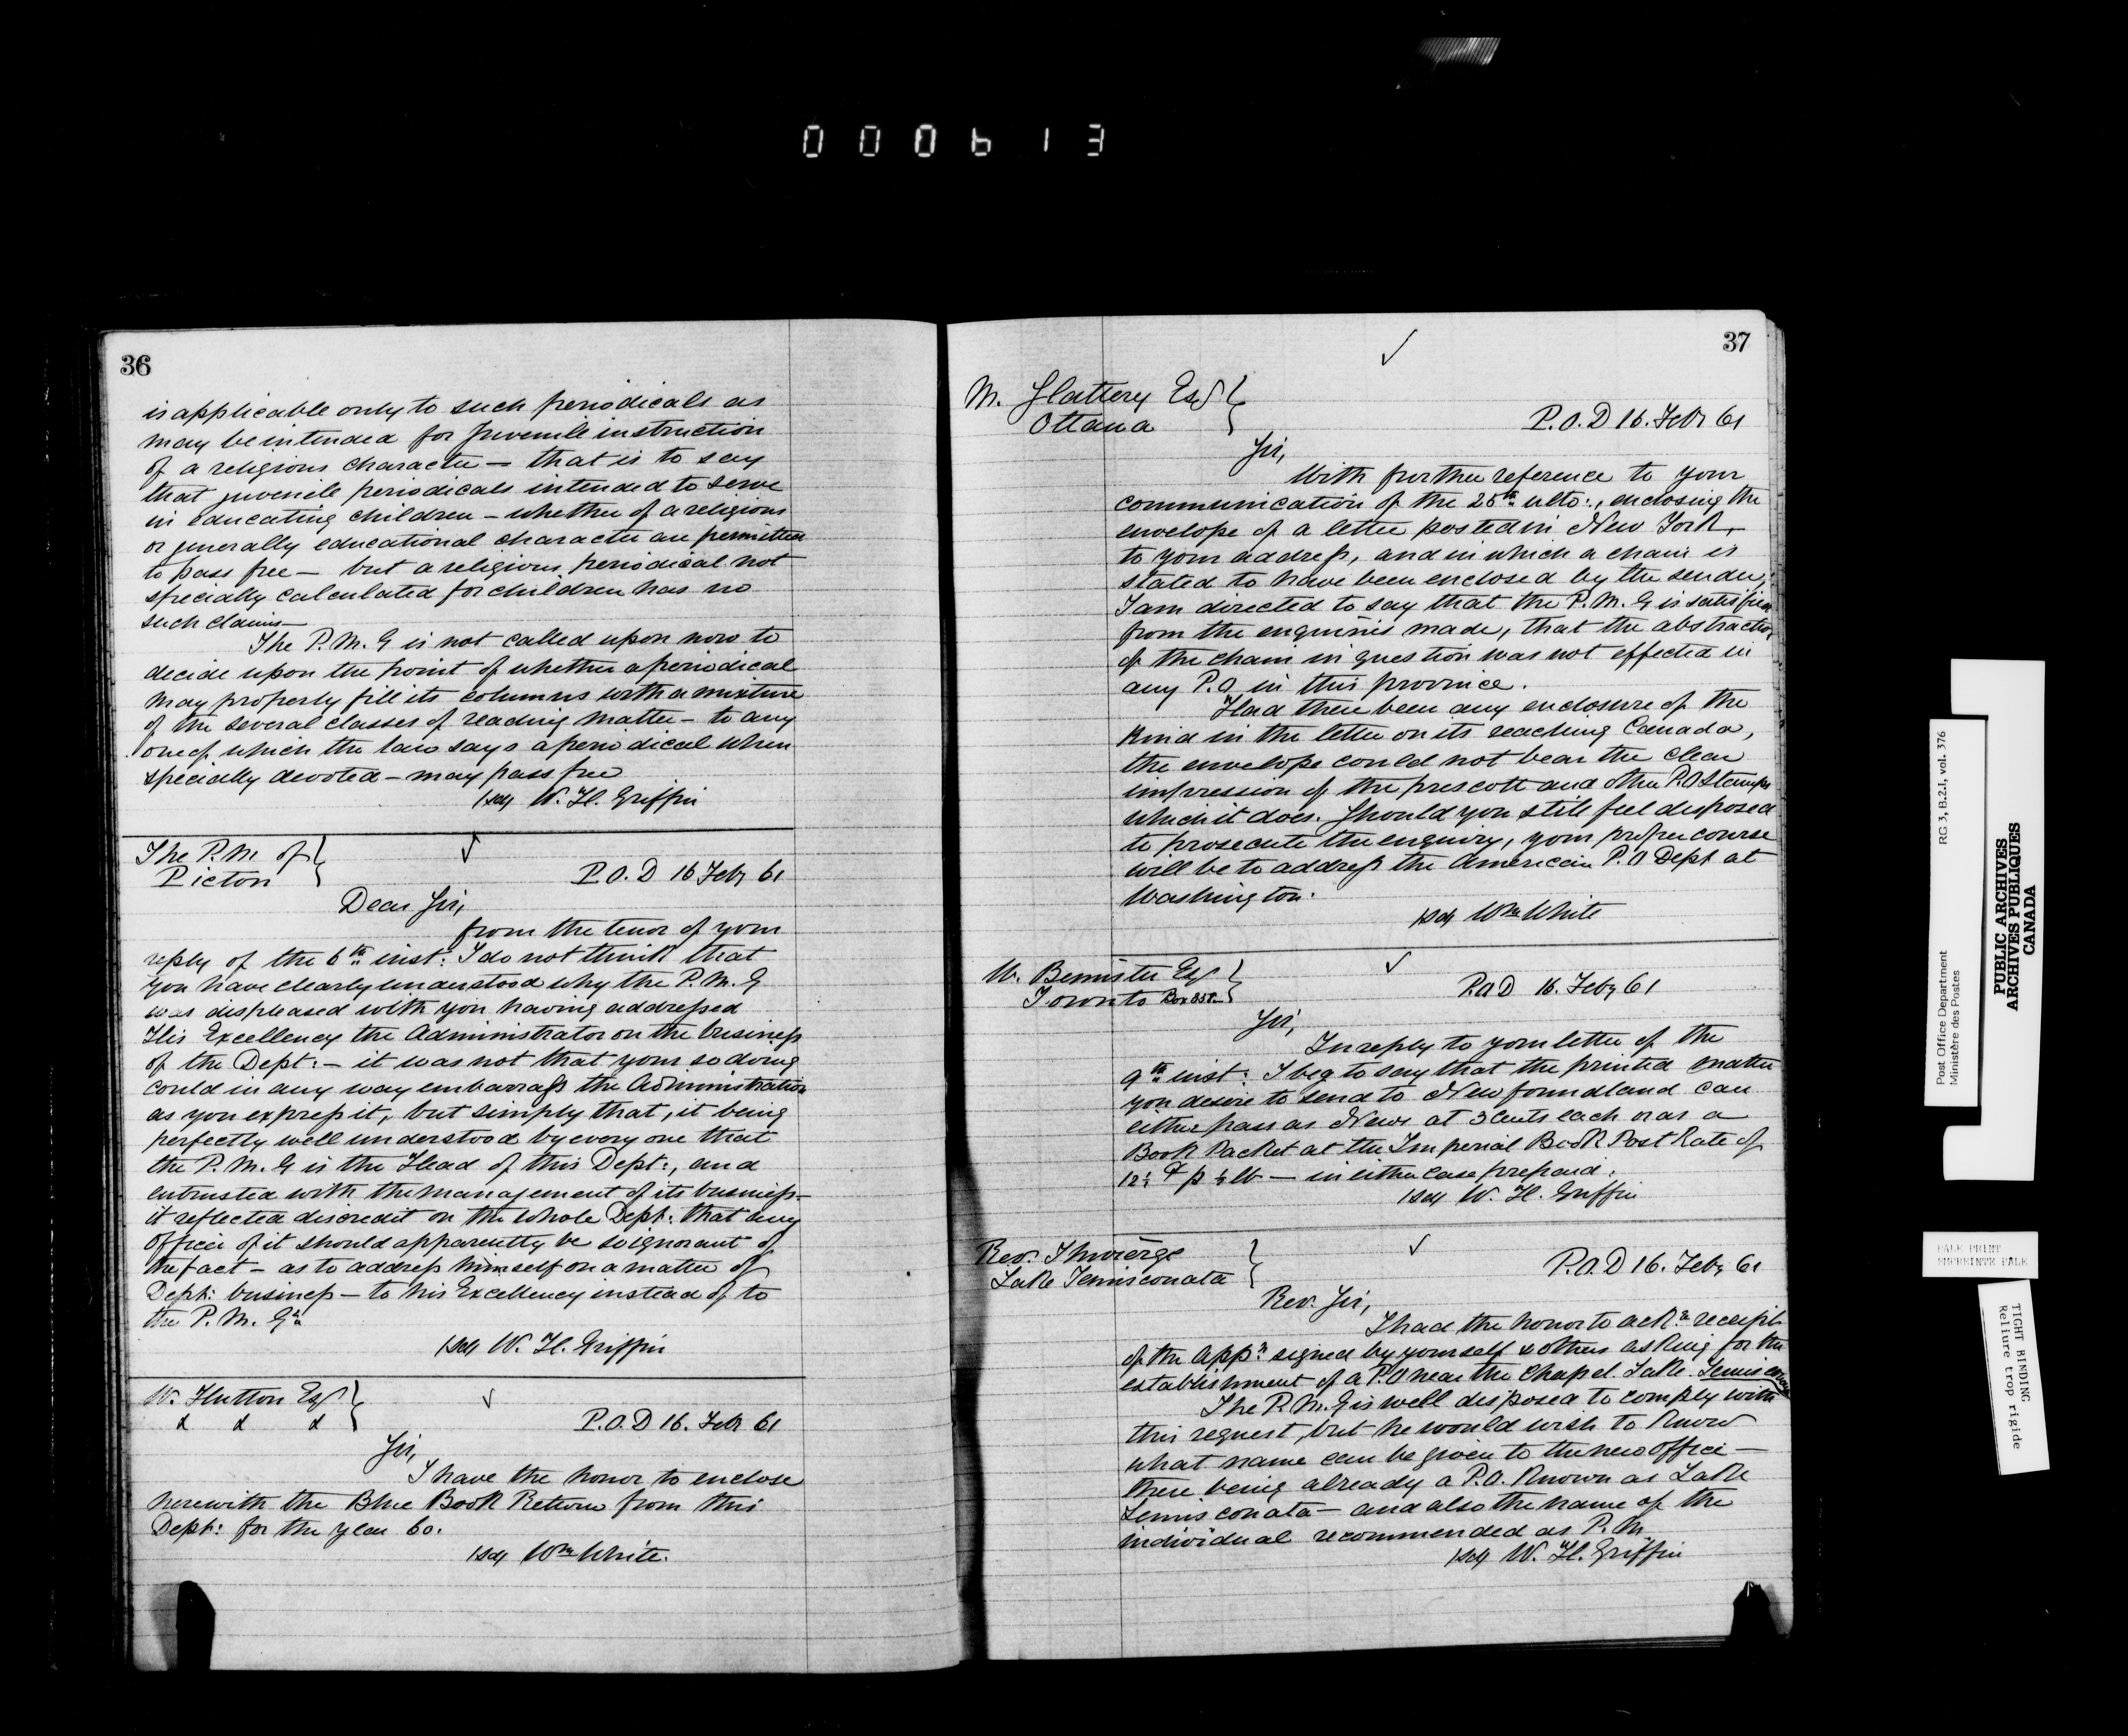 000613
36
is applicable only to such periodicals as
may be intended for Juvenile instruction
of a religious character — that is to say
that juvenile periodicals intended to serve
in educating children — whether of a religious
or generally educational character are permitted
to pass free — but a religious periodical not
specially calculated for children has no
such claims —
The P.M.G is not called upon now to
decide upon the point of whether a periodical
may properly fill its columns with a mixture
of the several classes of reading matter — to any
one of which the law says a periodical when
specially devoted — may pass free
(sd) W. H. Griffin
The P.M of
Picton
P.O.D 16 Feby 61
Dear Sir,
from the tenor of your
reply of the 6th inst: I do not think that
you have clearly understood why the P.M.G
was displeased with you having addressed
His Excellency the Administrator on the business
of the Dept: — it was not that your so doing
could in any way embarrass the Administration
as you express it, but simply that, it being
perfectly well understood by every one that
the P.M.G is the Head of this Dept:, and
entrusted with the management of its business —
it reflected discredit on the whole Dept: that any
Officer of it should apparently be so ignorant of
the fact — as to address himself on a matter of
Dept: business — to his Excellency instead of to
the P.M. Gl
(sd) W. H. Griffin
W. Hutton Esq
& & &
P.O.D 16. Feb 61
Sir,
I have the honor to enclose
herewith the Blue Book Return from this
Dept: for the year 60.
(sd) Wm White.
37
M. Slattery Esq
Ottawa
P.O.D 16. Feby 61
Sir,
With further reference to your
communication of the 25th ulto:, enclosing the
envelope of a letter posted in New York,
to your address, and in which a chain is
stated to have been enclosed by the sender;
I am directed to say that the P.M.G is satisfied
from the enquiries made, that the abstraction
of the chain in question was not effected in
any P.O in this province.
Had there been any enclosure of the
kind in the letter on its reaching Canada,
the envelope could not bear the clear
impression of the prescott and other P.O Stamps
which it does. Should you still feel disposed
to prosecute the enquiry, your proper course
will be to address the American P.O Dept at
Washington.
(sd) Wm White
W. Bennister Esq
Toronto Box 358
P.O.D 16. Feby 61
Sir,
In reply to your letter of the
9th inst: I beg to say that the printed matter
you desire to send to Newfoundland can
either pass as News at 3 Cents each or as a
Book Packet at the Imperial Book Post Rate of
12½ ¢ p ¼ lb — in either case prepaid.
(sd) W. H. Griffin
Rev.
Lake Temisconata
P.O.D 16. Feby 61
Rev. Sir,
I had the honor to ackn receipt
of the appn signed by yourself & others asking for the
establishment of a P.O near the Chapel. Lake Temisconata
The P.M.G is well disposed to comply with
this request, but he would wish to know
what name can be given to the new office —
there being already a P.O. known as Lake
Temisconata — and also the name of the
individual recommended as P.M.
(sd) W. H. Griffin
Post Office Department
Ministère des Postes
RG 3, B.2.I, vol. 376
PUBLIC ARCHIVES
ARCHIVES PUBLIQUES
CANADA
PALE PRINT
EMPREINTE PALE
TIGHT BINDING
Reliure trop rigide